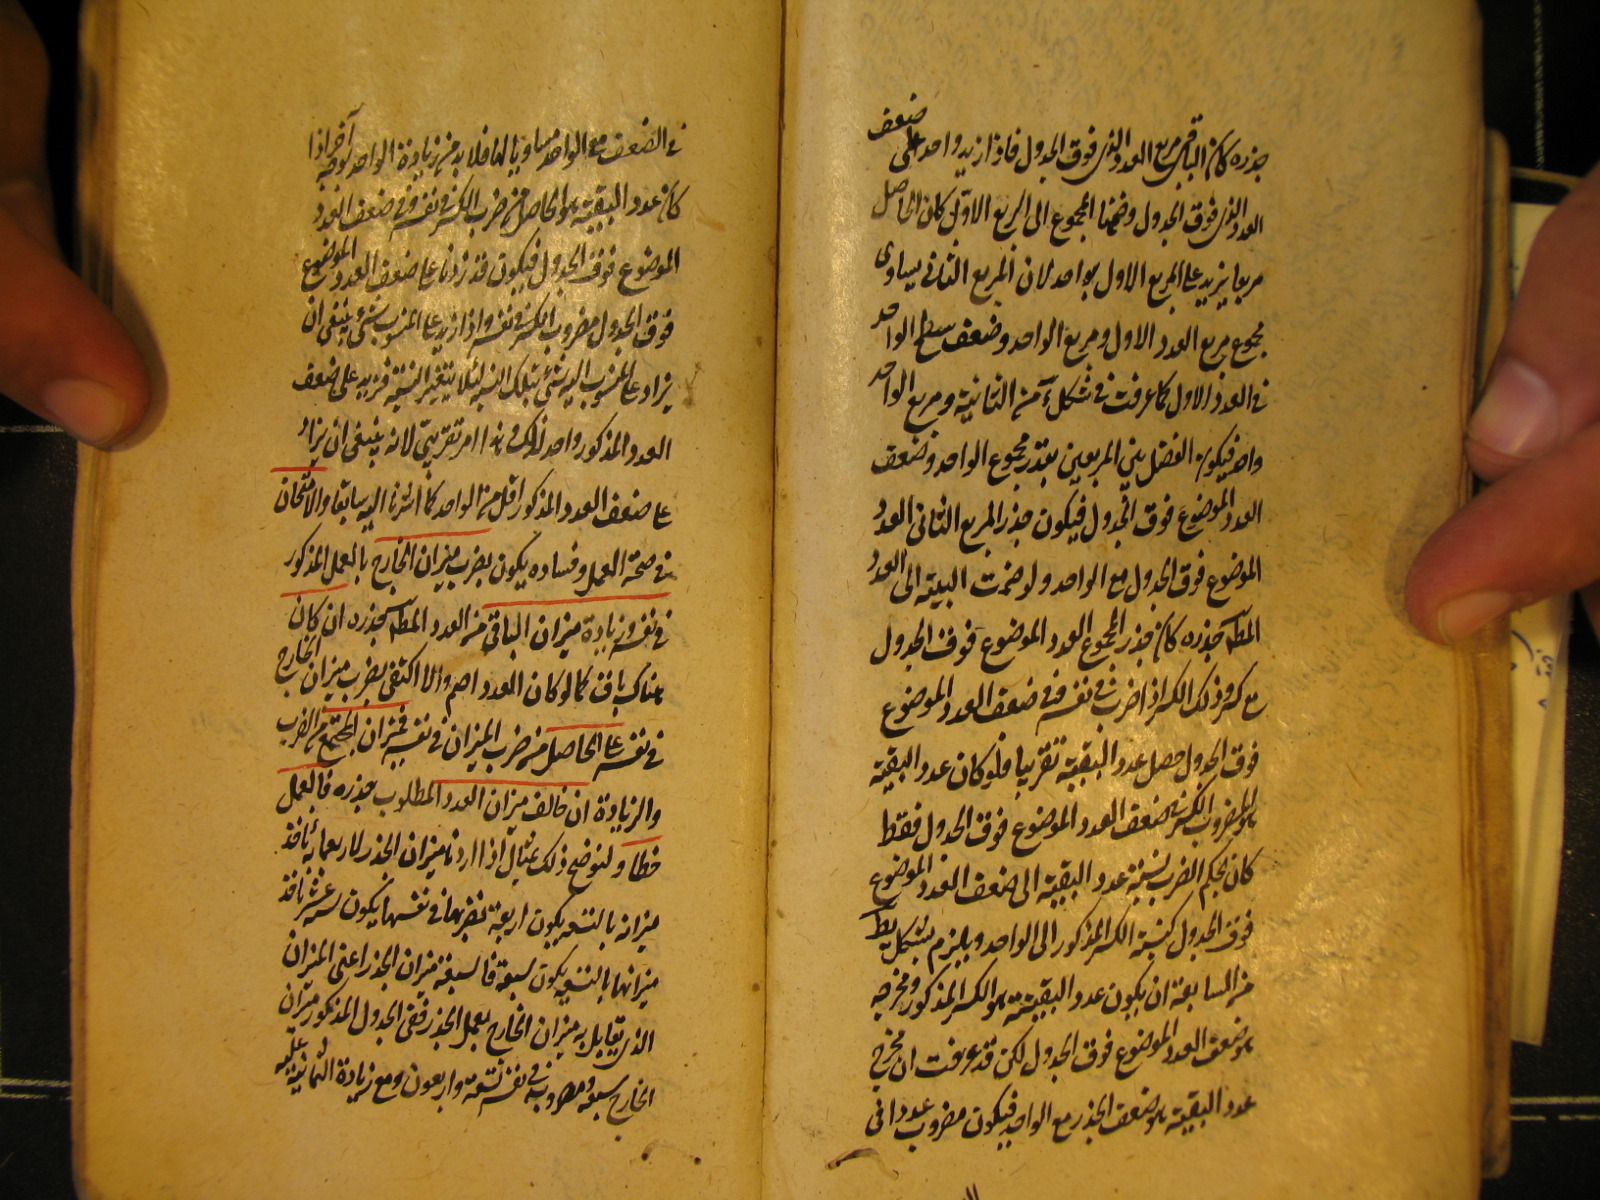 جذره كان الباقى مربع العدد الذى فوق الجدول فاذا زيد واحد على ضعف
العدد الذى فوق الجدول وضممنا المجموع الى المربع الاول كان الحاصل
مربعا يزيد على المربع الاول بواحد لان المربع الثانى يساوى
مجموع مربع العدد الاول ومربع الواحد وضعف سطح الواحد
فى العدد الاول كما عرفت فى شكل من الثانية ومربع الواحد
واحد فيكون الفضل بين المربعين بقدر مجموع الواحد وضعف
العدد الموضوع فوق الجدول فيكون جذر المربع الثانى العدد
الموضوع فوق الجدول مع الواحد ولو ضمت البقية الى العدد
المط جذره كان جذر المجموع العدد الموضوع فوق الجدول
مع كسر وذلك الكسر اذا ضرب فى نفسه وفى ضعف العدد الموضوع
فوق الجدول حصل عدد البقية تقريبا فلو كان عدد البقية
هو المضروب الكسر فى ضعف العدد الموضوع فوق الجدول فقط
كان بحكم الضرب نسبة عدد البقية الى ضعف العدد الموضوع
فوق الجدول كنسبة الكسر المذكور الى الواحد ويلزم بشكل يط
من السابعة ان يكون عدد البقية هو الكسر المذكور ومخرجه
هو ضعف العدد الموضوع فوق الجدول لكن قد عرفت ان مخرج
عدد البقية هو ضعف الجذر مع الواحد فيكون مضروب عدد افى
فى الضعف مع الواحد مساويا لها فلا بد من زيادة الواحد لوجه آخر اذا
كان عدد البقية هو الحاصل من ضرب الكسر فى نفسه وفى ضعف العدد
الموضوع فوق الجدول فيكون قد زدنا على ضعف العدد الموضوع
فوق الجدول مضروب الكسر فى نفسه واذا زيد على المنسوب شىء ينبغى ان
يزاد على المنسوب اليه شىء بتلك النسبة لئلا يتغير النسبة فزيد على ضعف
العدد المذكور واحد لذلك وهذا امر تقريبى لانه ينبغى ان يزاد
على ضعف العدد المذكور اقل من الواحد كما اشرنا اليه سابقا والامتحان
فى صحة العمل وفساده يكون بضرب ميزان الخارج بالعمل المذكور
فى نفسه وزيادة ميزان الباقى من العدد المط جذره ان كان
هناك باق كما لو كان العدد اصم والا اكتفى بضرب ميزان الخارج
فى نفسه على الحاصل من ضرب الميزان فى نفسه فميزان المجتمع من الضرب
والزيادة ان خالف ميزان العدد المطلوب جذره فالعمل
خطا ولنوضح ذلك بمثال اذا اردنا ميزان الجذر لاربعمائة نافذ
ميزانه بالتسعة يكون اربعة نضربها فى نفسها يكون ستة عشر نافذ
ميزانها بالتسعة يكون سبعة فالسبعة ميزان الجذر اعنى الميزان
الذى يقابل به ميزان الخارج بعمل الجذر ففى الجدول المذكور ميزان
الخارج سبعة ومضروبه فى نفسه تسعة واربعون ومع زيادة الثمانية عليه